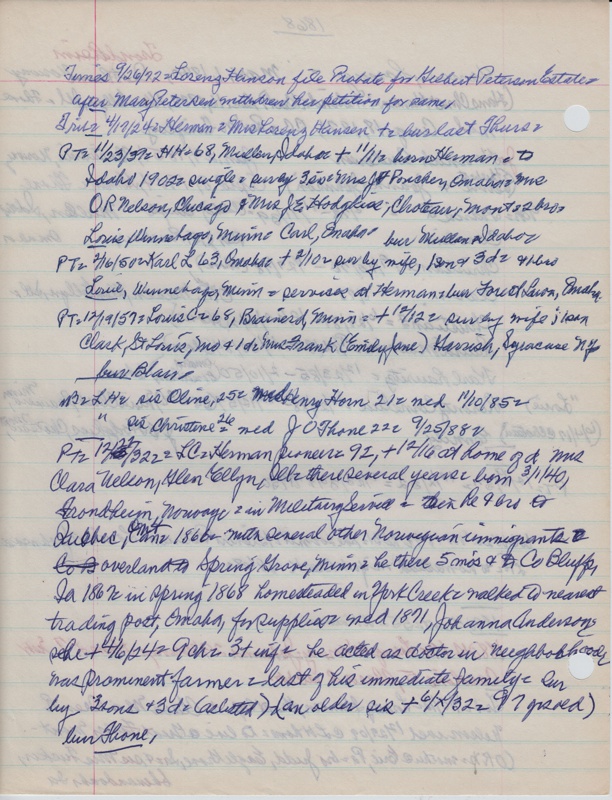 1868
Times 9/26/72 = Lorenz Hanson file Probate for Hilbert Peterson Estate =
after Mary Peterson withdrew her petition for same =
= Herman = Mrs Lorenz Hansen + = bur last Thurs =
PT = 11/23/39 = HH = 68, Mullen, Idaho = + 11/11 = born Herman = to
Idaho 1902 = single = sur by 3 sis = Mrs Procker, Omaha = Mrs
O R Nelson, Chicago & Mrs J E Hodgkiss, Choteau, Mont = 2 bros
Louis, Winnebago, Minn = Carl, Omaha = bur Mullan Idaho =
PT = 2/16/50 = Karl L 63, Omaha = + 2/10 = sur by wife, 1 son & 3 d = 4 bro
Louie, Winnebago, Minn = services at Herman = bur Forest Lawn, Omaha,
PT = 12/19/57 = Louis C = 68, Brainerd, Minn = + 12/12 = sur by wife; 1 son
Clark, St Louis, Mo & 1 d = Mrs Frank (Emily Jane) Harsish, Syracuse N Y =
bur Blair =
= L H = sis Oline, 25 = Henry Horn 21 = med 11/10/85 =
" sis Christine 26 med J O Thone 22 = 9/25/88 =
PT = /32 = L C = Herman pioneer = 92, + 12/16 at home of d Mrs
Clara Nelson, Glen Ellyn, Ill = there several years = born 3/1/40,
Trondheim, Norway = in Military Service = then he & bro to
Quebec, Ont Can = 1866 = with several other Norwegian immigrants =
overland to Spring Grove, Minn = he there 5 mos & to Co Bluffs,
Ia 1867 = in spring 1868 homesteaded in York Creek = walked to nearest
trading post, Omaha, for supplies = med 1871, Johanna Anderson =
she + 4/6/24 = 9 ch = 3 + inf = he acted as doctor in neighborhood
was prominent farmer = last of his immediate family = sur
by 3 sons & 3 d = (as listed) (an older sis + 6/ /32 = 97 yrs old)
bur Thone,